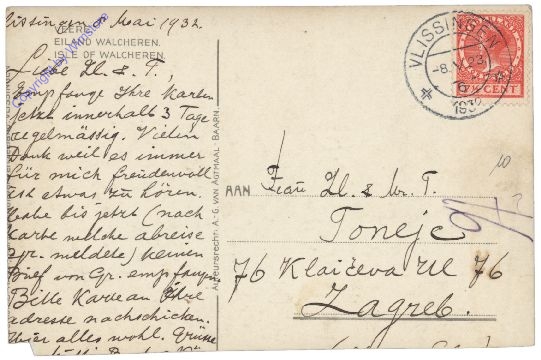 Vlissingen 8 Mai 1932.
VEERE.
EILAND WALCHEREN.
ISLE OF WALCHEREN.
Liebe Zl. & T.,
Empfange Ihre Karten
jetzt innerhalb 3 Tage
regelmässig. Vielen
Dank weil es immer
für mich freudenvoll
ist etwas zu hören.
Habe bis jetzt (nach
Karte welche abreise
Gr. meldete) keinen
Brief von Gr. empfangen
Bitte Karte an Ihre
Adresse nachschicken.
Hier alles wohl. Grüsse
VLISSINGEN
Auteursrecht: A.-G. VAN AGTMAAL - BAARN.
VLISSINGEN
-8.V.23
1932
CENT
10
AAN
Frau Zl. & br. T.
Toneje
76 Klaićeva Ul 76
Zagreb.